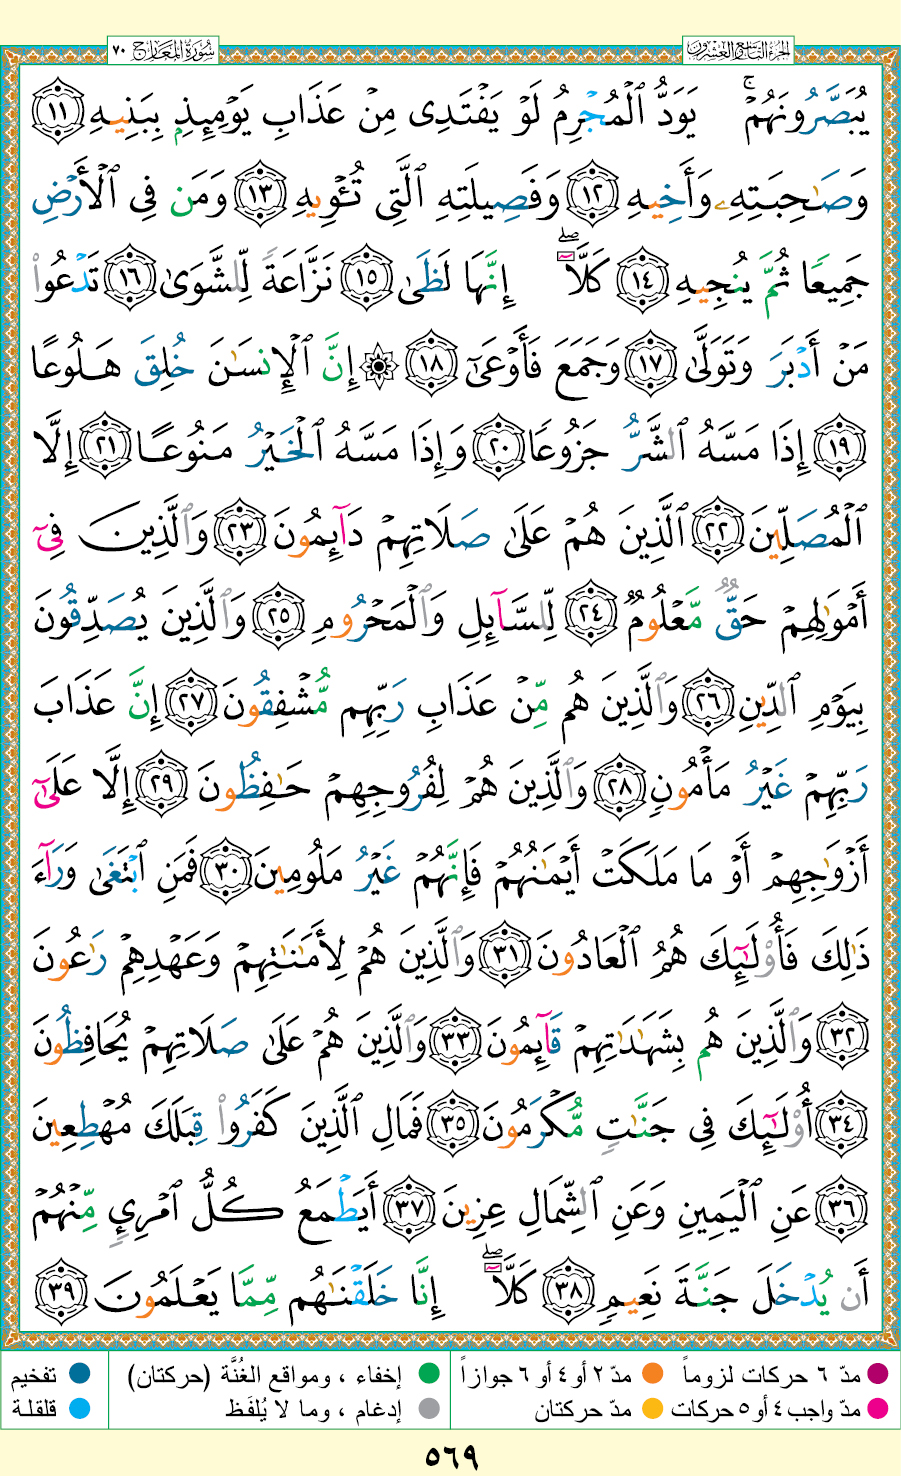 الجزء التاسع والعشرون
سُورَةُ المَعَارِجِ ٧٠
يُبَصَّرُونَهُمْ ۚ يَوَدُّ ٱلْمُجْرِمُ لَوْ يَفْتَدِى مِنْ عَذَابِ يَوْمِئِذٍۭ بِبَنِيهِ ١١
وَصَـٰحِبَتِهِۦ وَأَخِيهِ ١٢ وَفَصِيلَتِهِ ٱلَّتِى تُـْٔوِيهِ ١٣ وَمَن فِى ٱلْأَرْضِ
جَمِيعًا ثُمَّ يُنجِيهِ ١٤ كَلَّآ ۖ إِنَّهَا لَظَىٰ ١٥ نَزَّاعَةً لِّلشَّوَىٰ ١٦ تَدْعُوا۟
مَنْ أَدْبَرَ وَتَوَلَّىٰ ١٧ وَجَمَعَ فَأَوْعَىٰٓ ١٨ ۞ إِنَّ ٱلْإِنسَـٰنَ خُلِقَ هَلُوعًا
١٩ إِذَا مَسَّهُ ٱلشَّرُّ جَزُوعًا ٢٠ وَإِذَا مَسَّهُ ٱلْخَيْرُ مَنُوعًا ٢١ إِلَّا
ٱلْمُصَلِّينَ ٢٢ ٱلَّذِينَ هُمْ عَلَىٰ صَلَاتِهِمْ دَآئِمُونَ ٢٣ وَٱلَّذِينَ فِىٓ
أَمْوَٰلِهِمْ حَقٌّ مَّعْلُومٌ ٢٤ لِّلسَّآئِلِ وَٱلْمَحْرُومِ ٢٥ وَٱلَّذِينَ يُصَدِّقُونَ
بِيَوْمِ ٱلدِّينِ ٢٦ وَٱلَّذِينَ هُم مِّنْ عَذَابِ رَبِّهِم مُّشْفِقُونَ ٢٧ إِنَّ عَذَابَ
رَبِّهِمْ غَيْرُ مَأْمُونٍ ٢٨ وَٱلَّذِينَ هُمْ لِفُرُوجِهِمْ حَـٰفِظُونَ ٢٩ إِلَّا عَلَىٰٓ
أَزْوَٰجِهِمْ أَوْ مَا مَلَكَتْ أَيْمَـٰنُهُمْ فَإِنَّهُمْ غَيْرُ مَلُومِينَ ٣٠ فَمَنِ ٱبْتَغَىٰ وَرَآءَ
ذَٰلِكَ فَأُو۟لَـٰٓئِكَ هُمُ ٱلْعَادُونَ ٣١ وَٱلَّذِينَ هُمْ لِأَمَـٰنَـٰتِهِمْ وَعَهْدِهِمْ رَٰعُونَ
٣٢ وَٱلَّذِينَ هُم بِشَهَـٰدَٰتِهِمْ قَآئِمُونَ ٣٣ وَٱلَّذِينَ هُمْ عَلَىٰ صَلَاتِهِمْ يُحَافِظُونَ
٣٤ أُو۟لَـٰٓئِكَ فِى جَنَّـٰتٍ مُّكْرَمُونَ ٣٥ فَمَالِ ٱلَّذِينَ كَفَرُوا۟ قِبَلَكَ مُهْطِعِينَ
٣٦ عَنِ ٱلْيَمِينِ وَعَنِ ٱلشِّمَالِ عِزِينَ ٣٧ أَيَطْمَعُ كُلُّ ٱمْرِئٍ مِّنْهُمْ
أَن يُدْخَلَ جَنَّةَ نَعِيمٍ ٣٨ كَلَّآ ۖ إِنَّا خَلَقْنَـٰهُم مِّمَّا يَعْلَمُونَ ٣٩
مدّ ٦ حركات لزوماً مدّ ٢ أو ٤ أو ٦ جوازاً إخفاء ، ومواقع الغُنَّة (حركتان) تفخيم
مدّ واجب ٤ أو ٥ حركات مدّ حركتان إدغام ، وما لا يُلفَظ قلقلة
٥٦٩